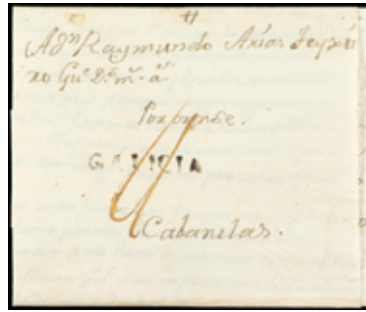 A Dn Raymundo Arias Teyxei
ro Gue. Ds. ms. as.
Por orense.
GALICIA
Cabanelas.